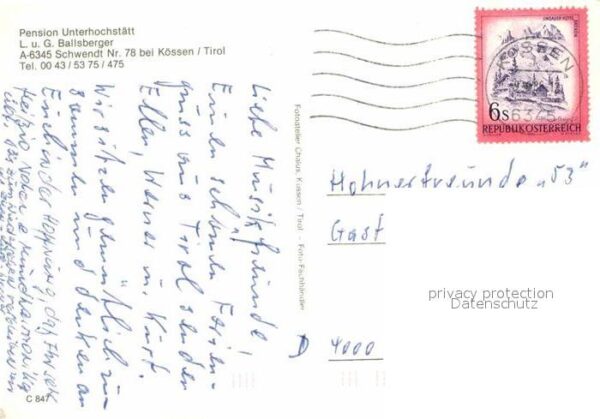 Pension Unterhochstätt
L. u. G. Ballsberger
A-6345 Schwendt Nr. 78 bei Kössen / Tirol
Tel. 00 43 / 53 75 / 475
Liebe Musikfreunde!
Einen schönen Ferien-
gruss aus Tirol senden
Ellen, Werner u. Kurt.
Wir sitzen gemütlich zu-
sammen und denken an
Euch in der Hoffnung, daß Ihr
C 847
Fotoatelier Chalus, Kössen / Tirol - Foto-Fachhändler
LINDAUER HÜTTE
KÖSSEN
6345
6s
REPUBLIK ÖSTERREICH
Hohnerfreunde „53"
Gast
D 4000
privacy protection
Datenschutz